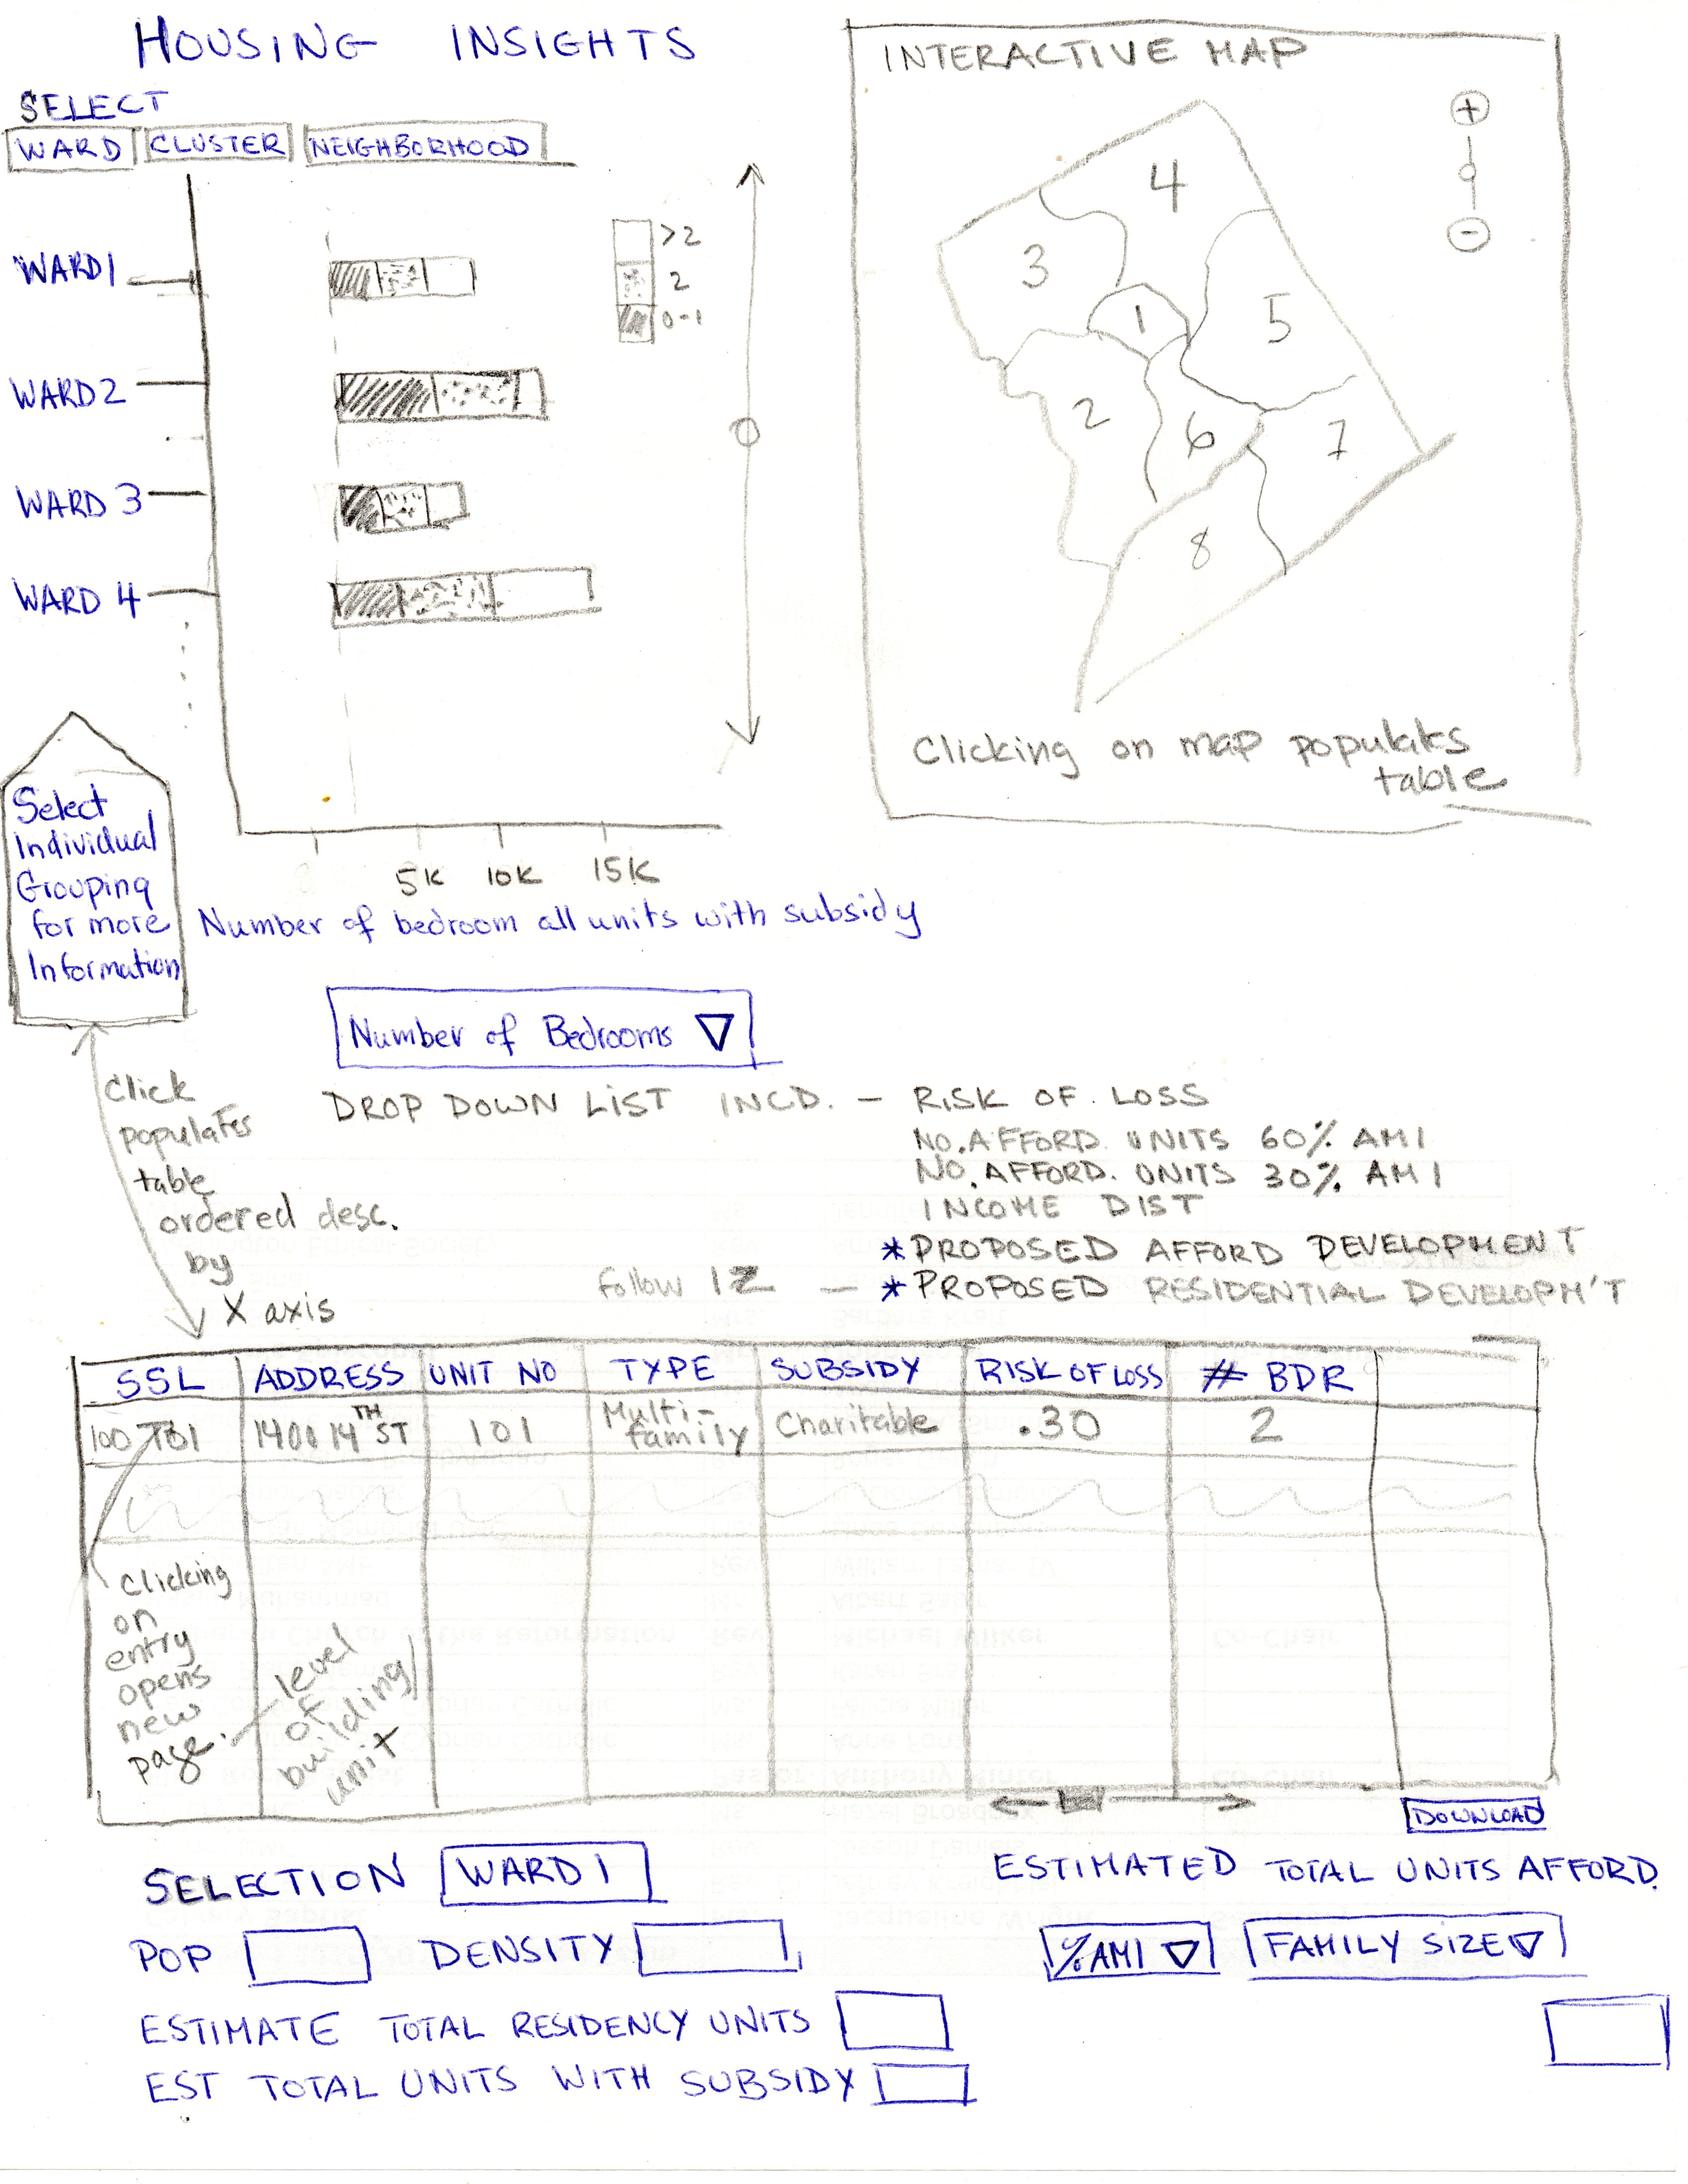 HOUSING INSIGHTS
SELECT
WARD CLUSTER NEIGHBORHOOD
WARD1
WARD2
WARD 3
WARD 4
>2
2
0-1
5K 10K 15K
Number of bedroom all units with subsidy
Select
Individual
Grouping
for more
Information
INTERACTIVE MAP
+
-
4
3
1
5
2
6
7
8
Clicking on map populates
table
Number of Bedrooms
DROP DOWN LIST INCD. - RISK OF LOSS
NO. AFFORD. UNITS 60% AMI
NO. AFFORD. UNITS 30% AMI
INCOME DIST
*PROPOSED AFFORD DEVELOPMENT
follow IZ - *PROPOSED RESIDENTIAL DEVELOPM'T
Click
populates
table
ordered desc.
by
X axis
SSL ADDRESS UNIT NO TYPE SUBSIDY RISK OF LOSS # BDR
100 1400 14TH ST 101 Multi-family Charitable .30 2
Clicking
on
entry
opens
new
page.
level
of
building/
unit
DOWNLOAD
SELECTION WARD1
POP DENSITY
ESTIMATE TOTAL RESIDENCY UNITS
EST TOTAL UNITS WITH SUBSIDY
ESTIMATED TOTAL UNITS AFFORD.
%AMI FAMILY SIZE